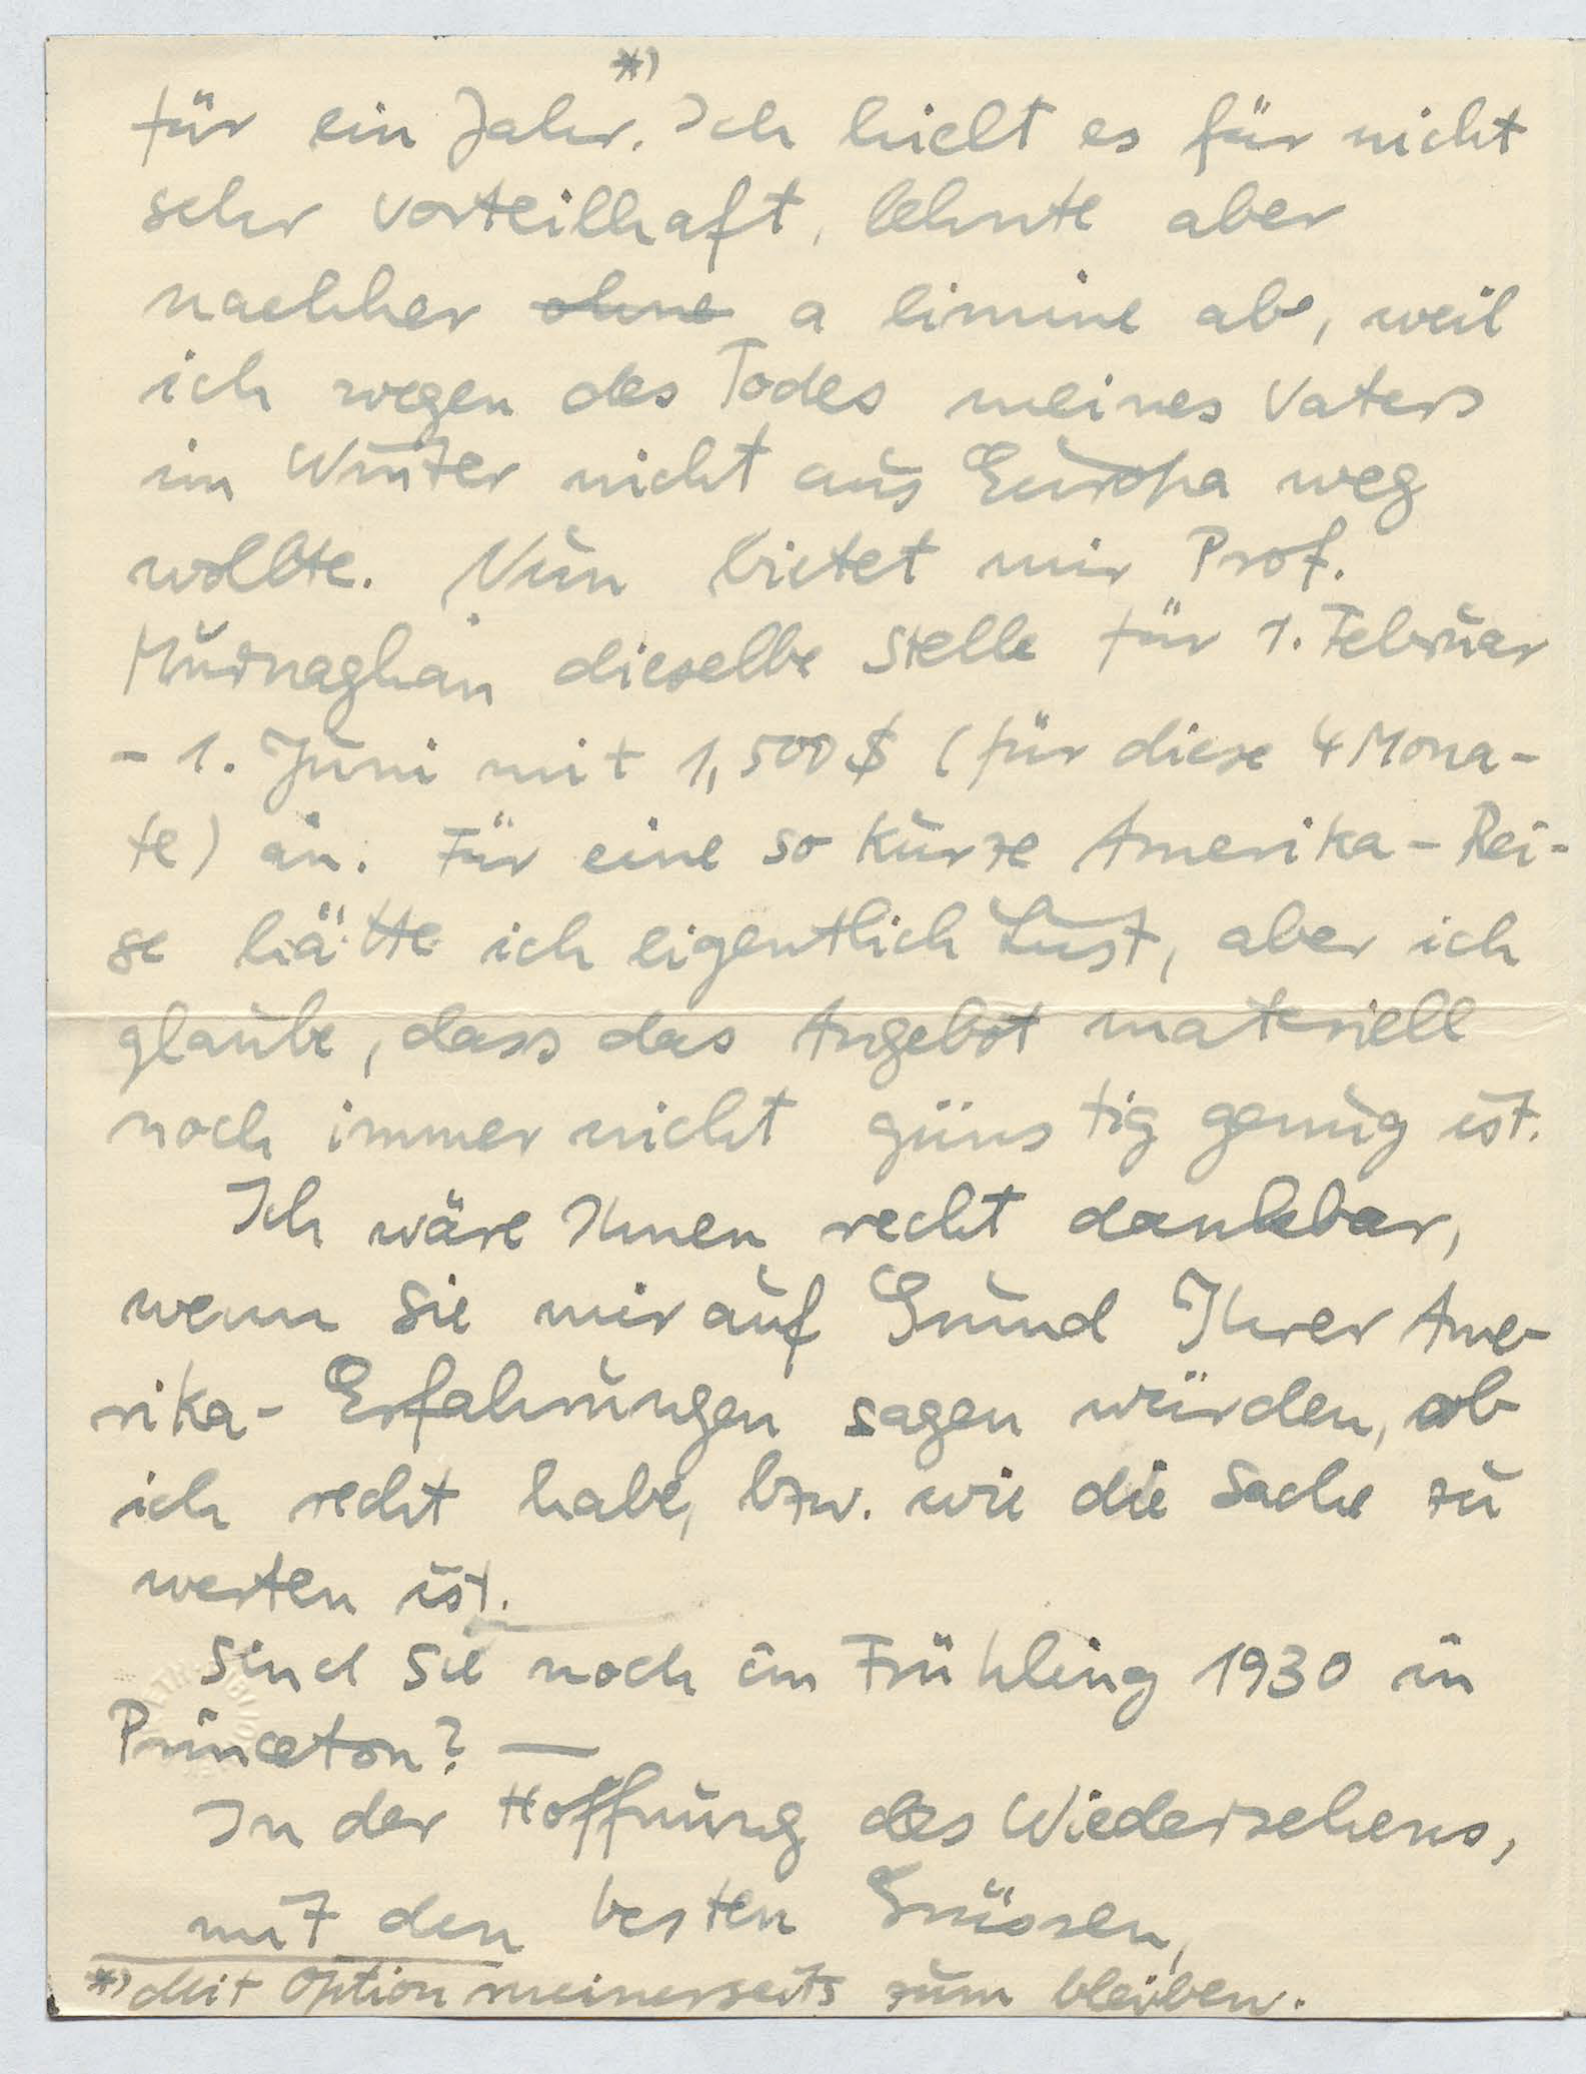 *)
für ein Jahr. Ich hielt es für nicht
sehr vorteilhaft, lehnte aber
nachher ohne a limine ab, weil
ich wegen des Todes meines Vaters
im Winter nicht aus Europa weg
wollte. Nun bietet mir Prof.
Murnaghan dieselbe Stelle für 1. Februar
- 1. Juni mit 1,500 $ (für diese 4 Mona-
te) an. Für eine so kurze Amerika-Rei-
se hätte ich eigentlich Lust, aber ich
glaube, dass das Angebot materiell
noch immer nicht günstig genug ist.
Ich wäre Ihnen recht dankbar,
wenn Sie mir auf Grund Ihrer Ame-
rika-Erfahrungen sagen würden, ob
ich recht habe, bzw. wie die Sache zu
werten ist.
Sind Sie noch im Frühling 1930 in
Princeton? —
In der Hoffnung des Wiedersehens,
mit den besten Grüssen,
*) Mit Option meinerseits zum bleiben.